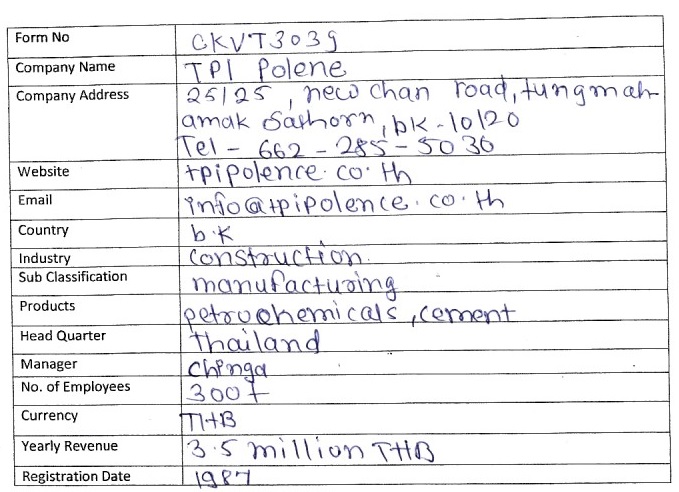 Form No CKVT3039
Company Name TPI Polene
Company Address 25/25, new chan road, tungmah
amak Sathorn, bk-10120
Tel - 662 - 285 - 5036
Website tpipolence.co.th
Email info@tpipolence.co.th
Country b.k
Industry construction.
Sub Classification manufacturing
Products petrochemicals, cement
Head Quarter thailand
Manager Chinga
No. of Employees 300+
Currency THB
Yearly Revenue 3.5 million THB
Registration Date 1987